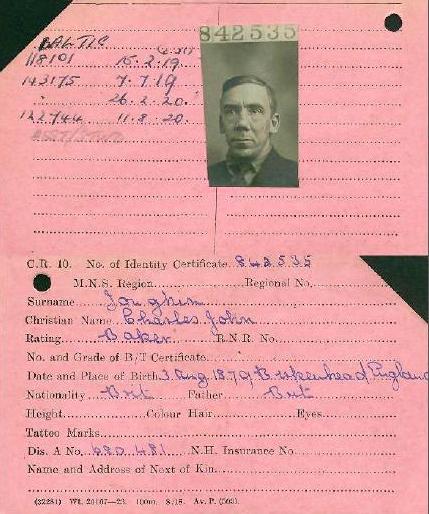 842535
BALTIC
118101 15.2.19
143175 7.7.19
" 26.2.20.
122744 11.8.20.
C.R. 10. No. of Identity Certificate 842535
M.N.S. Region Regional No.
Surname Joughin
Christian Name Charles John
Rating Baker R.N.R. No.
No. and Grade of B/T Certificate
Date and Place of Birth 3 Aug 1879 Birkenhead England
Nationality Brit Father Brit
Height Colour Hair Eyes
Tattoo Marks
Dis. A No. 680.481 N.H. Insurance No.
Name and Address of Next of Kin